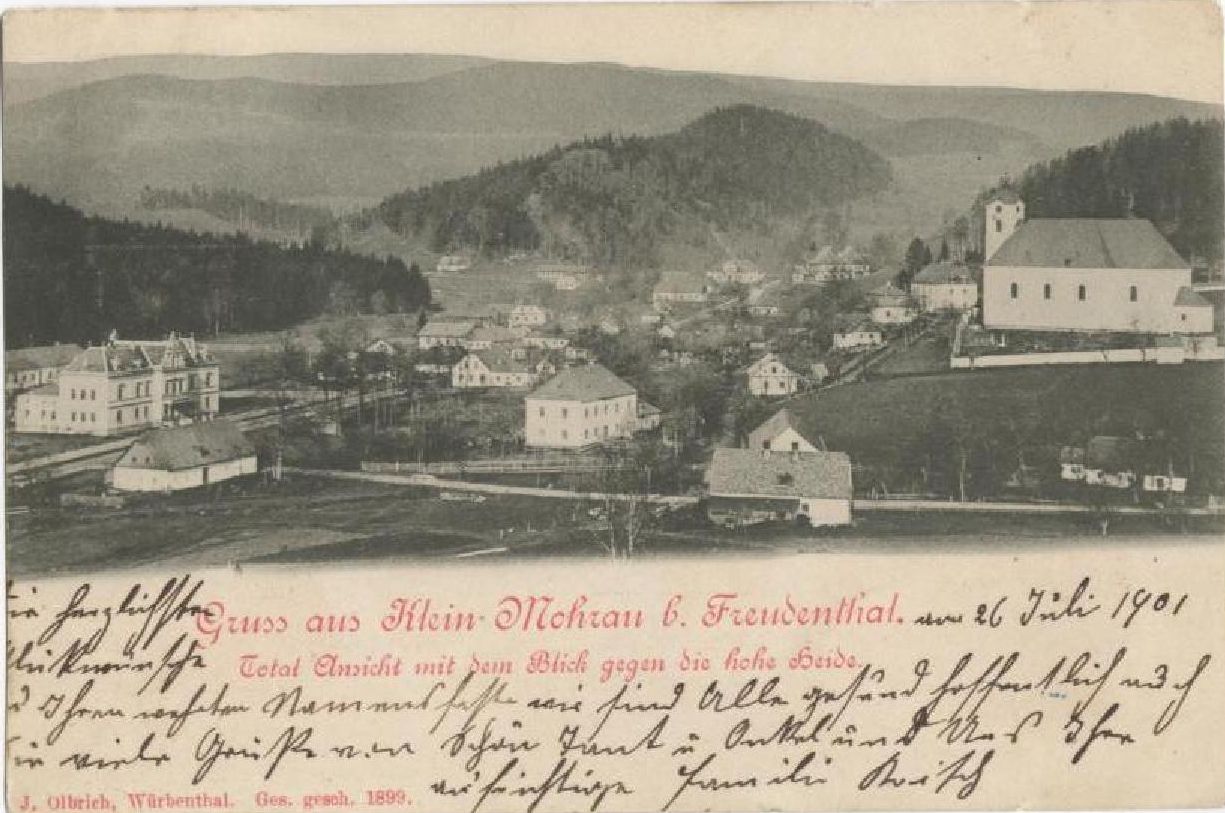 die herzlichsten
Gruss aus Klein-Mohrau b. Freudenthal.
am 26 Juli 1901
Glückwünsche
Total Ansicht mit dem Blick gegen die hohe Heide.
Ihren wehrten Namensfeste wir sind Alle gesund hoffentlich auch
Sie viele Grüße von Schön Tant u Onkel und Uns Ihre
aufrichtige Familie
J. Olbrich, Würbenthal. Ges. gesch. 1899.